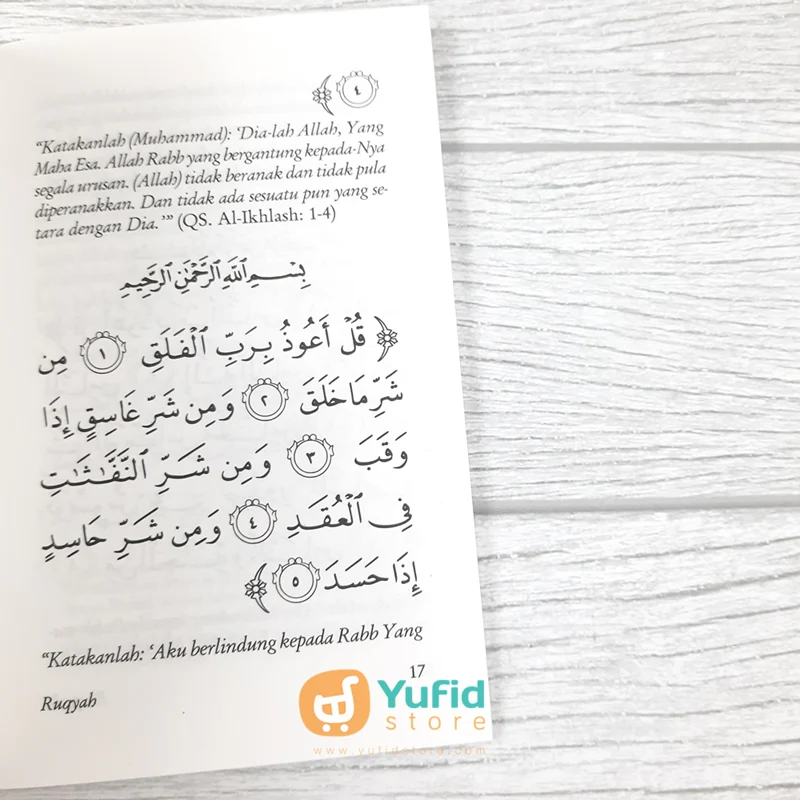 ﴿٤﴾
“Katakanlah (Muhammad): ‘Dia-lah Allah, Yang
Maha Esa. Allah Rabb yang bergantung kepada-Nya
segala urusan. (Allah) tidak beranak dan tidak pula
diperanakkan. Dan tidak ada sesuatu pun yang se-
tara dengan Dia.’” (QS. Al-Ikhlash: 1-4)
بِسْمِ ٱللَّهِ ٱلرَّحْمَٰنِ ٱلرَّحِيمِ
﴿قُلْ أَعُوذُ بِرَبِّ ٱلْفَلَقِ ١ مِن
شَرِّ مَا خَلَقَ ٢ وَمِن شَرِّ غَاسِقٍ إِذَا
وَقَبَ ٣ وَمِن شَرِّ ٱلنَّفَّٰثَٰتِ
فِى ٱلْعُقَدِ ٤ وَمِن شَرِّ حَاسِدٍ
إِذَا حَسَدَ ٥﴾
“Katakanlah: ‘Aku berlindung kepada Rabb Yang
17
Ruqyah
Yufid
store
www.yufidstore.com